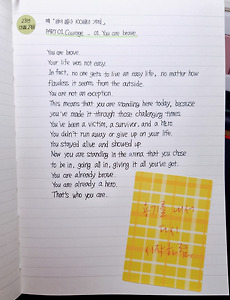 PART 01. Courage - 01. You are brave.
You are brave.
Your life was not easy.
In fact, no one gets to live an easy life, no matter how
flawless it seems from the outside.
You are not an exception.
This means that you are standing here today, because
you've made it through those challenging times.
You've been a victim, a survivor, and a hero.
You didn't run away or give up on your life.
You stayed alive and showed up.
Now you are standing in the arena that you chose
to be in, going all in, giving it all you've got.
You are already brave.
You are already a hero.
That's who you are.
용기를 내어